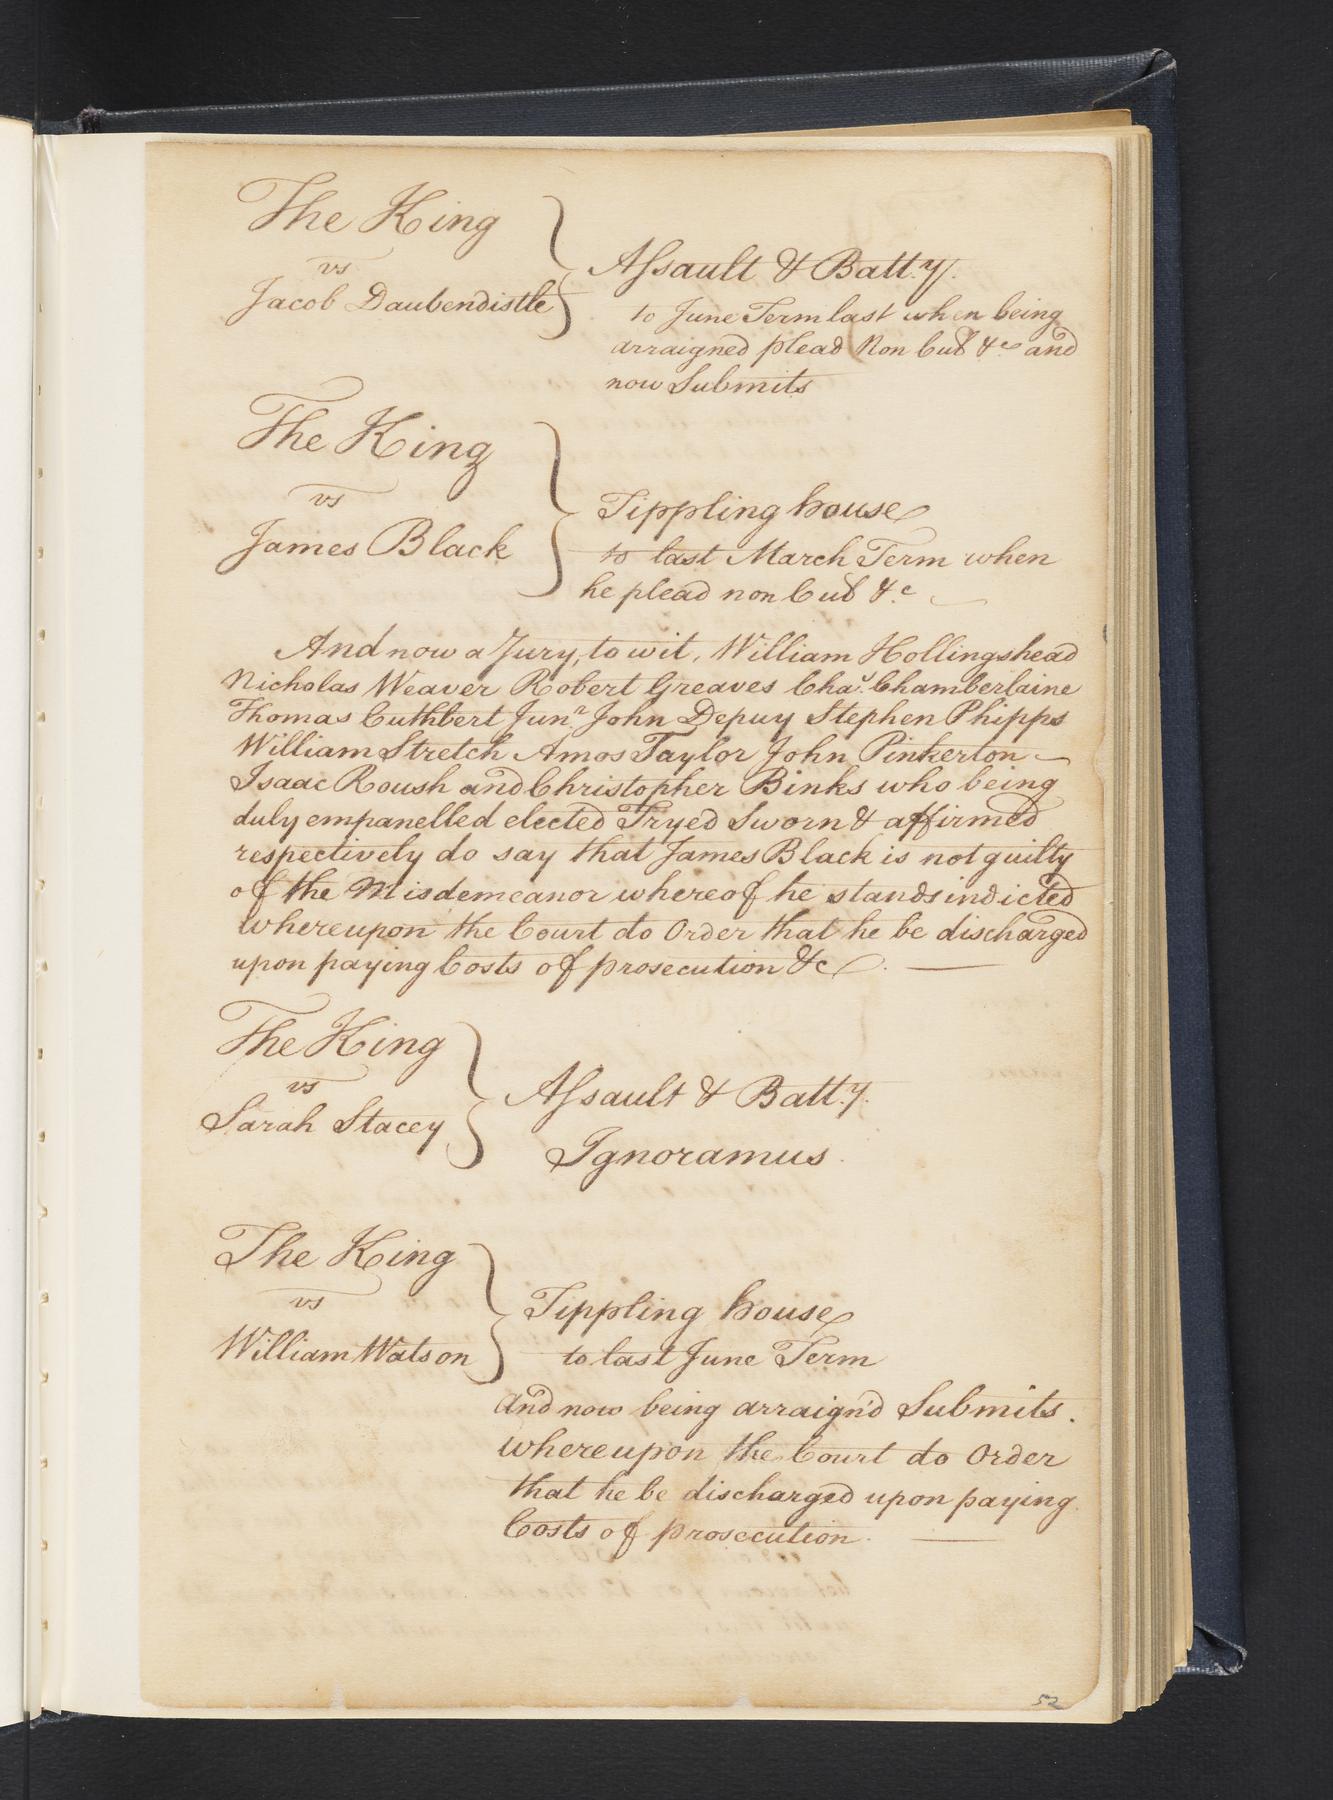 The King
vs
Jacob Daubendistle
Assault & Batt.y.
to June Term last when being
arraigned plead Non Cul &c and
now Submits
The King
vs
James Black
Tippling house
to last March Term when
he plead non Cul &c
And now a Jury, to wit, William Hollingshead
Nicholas Weaver Robert Greaves Chas. Chamberlaine
Thomas Cuthbert Junr. John Depuy Stephen Phipps
William Stretch Amos Taylor John Pinkerton
Isaac Roush and Christopher Binks who being
duly empanelled elected Tryed Sworn & affirmed
respectively do say that James Black is not guilty
of the Misdemeanor whereof he stands indicted
Whereupon the Court do Order that he be discharged
upon paying Costs of prosecution &c.
The King
vs
Sarah Stacey
Assault & Batt.y.
Ignoramus.
The King
vs
William Watson
Tippling house
to last June Term
and now being arraign'd Submits.
Whereupon the Court do Order
that he be discharged upon paying
Costs of prosecution.
52